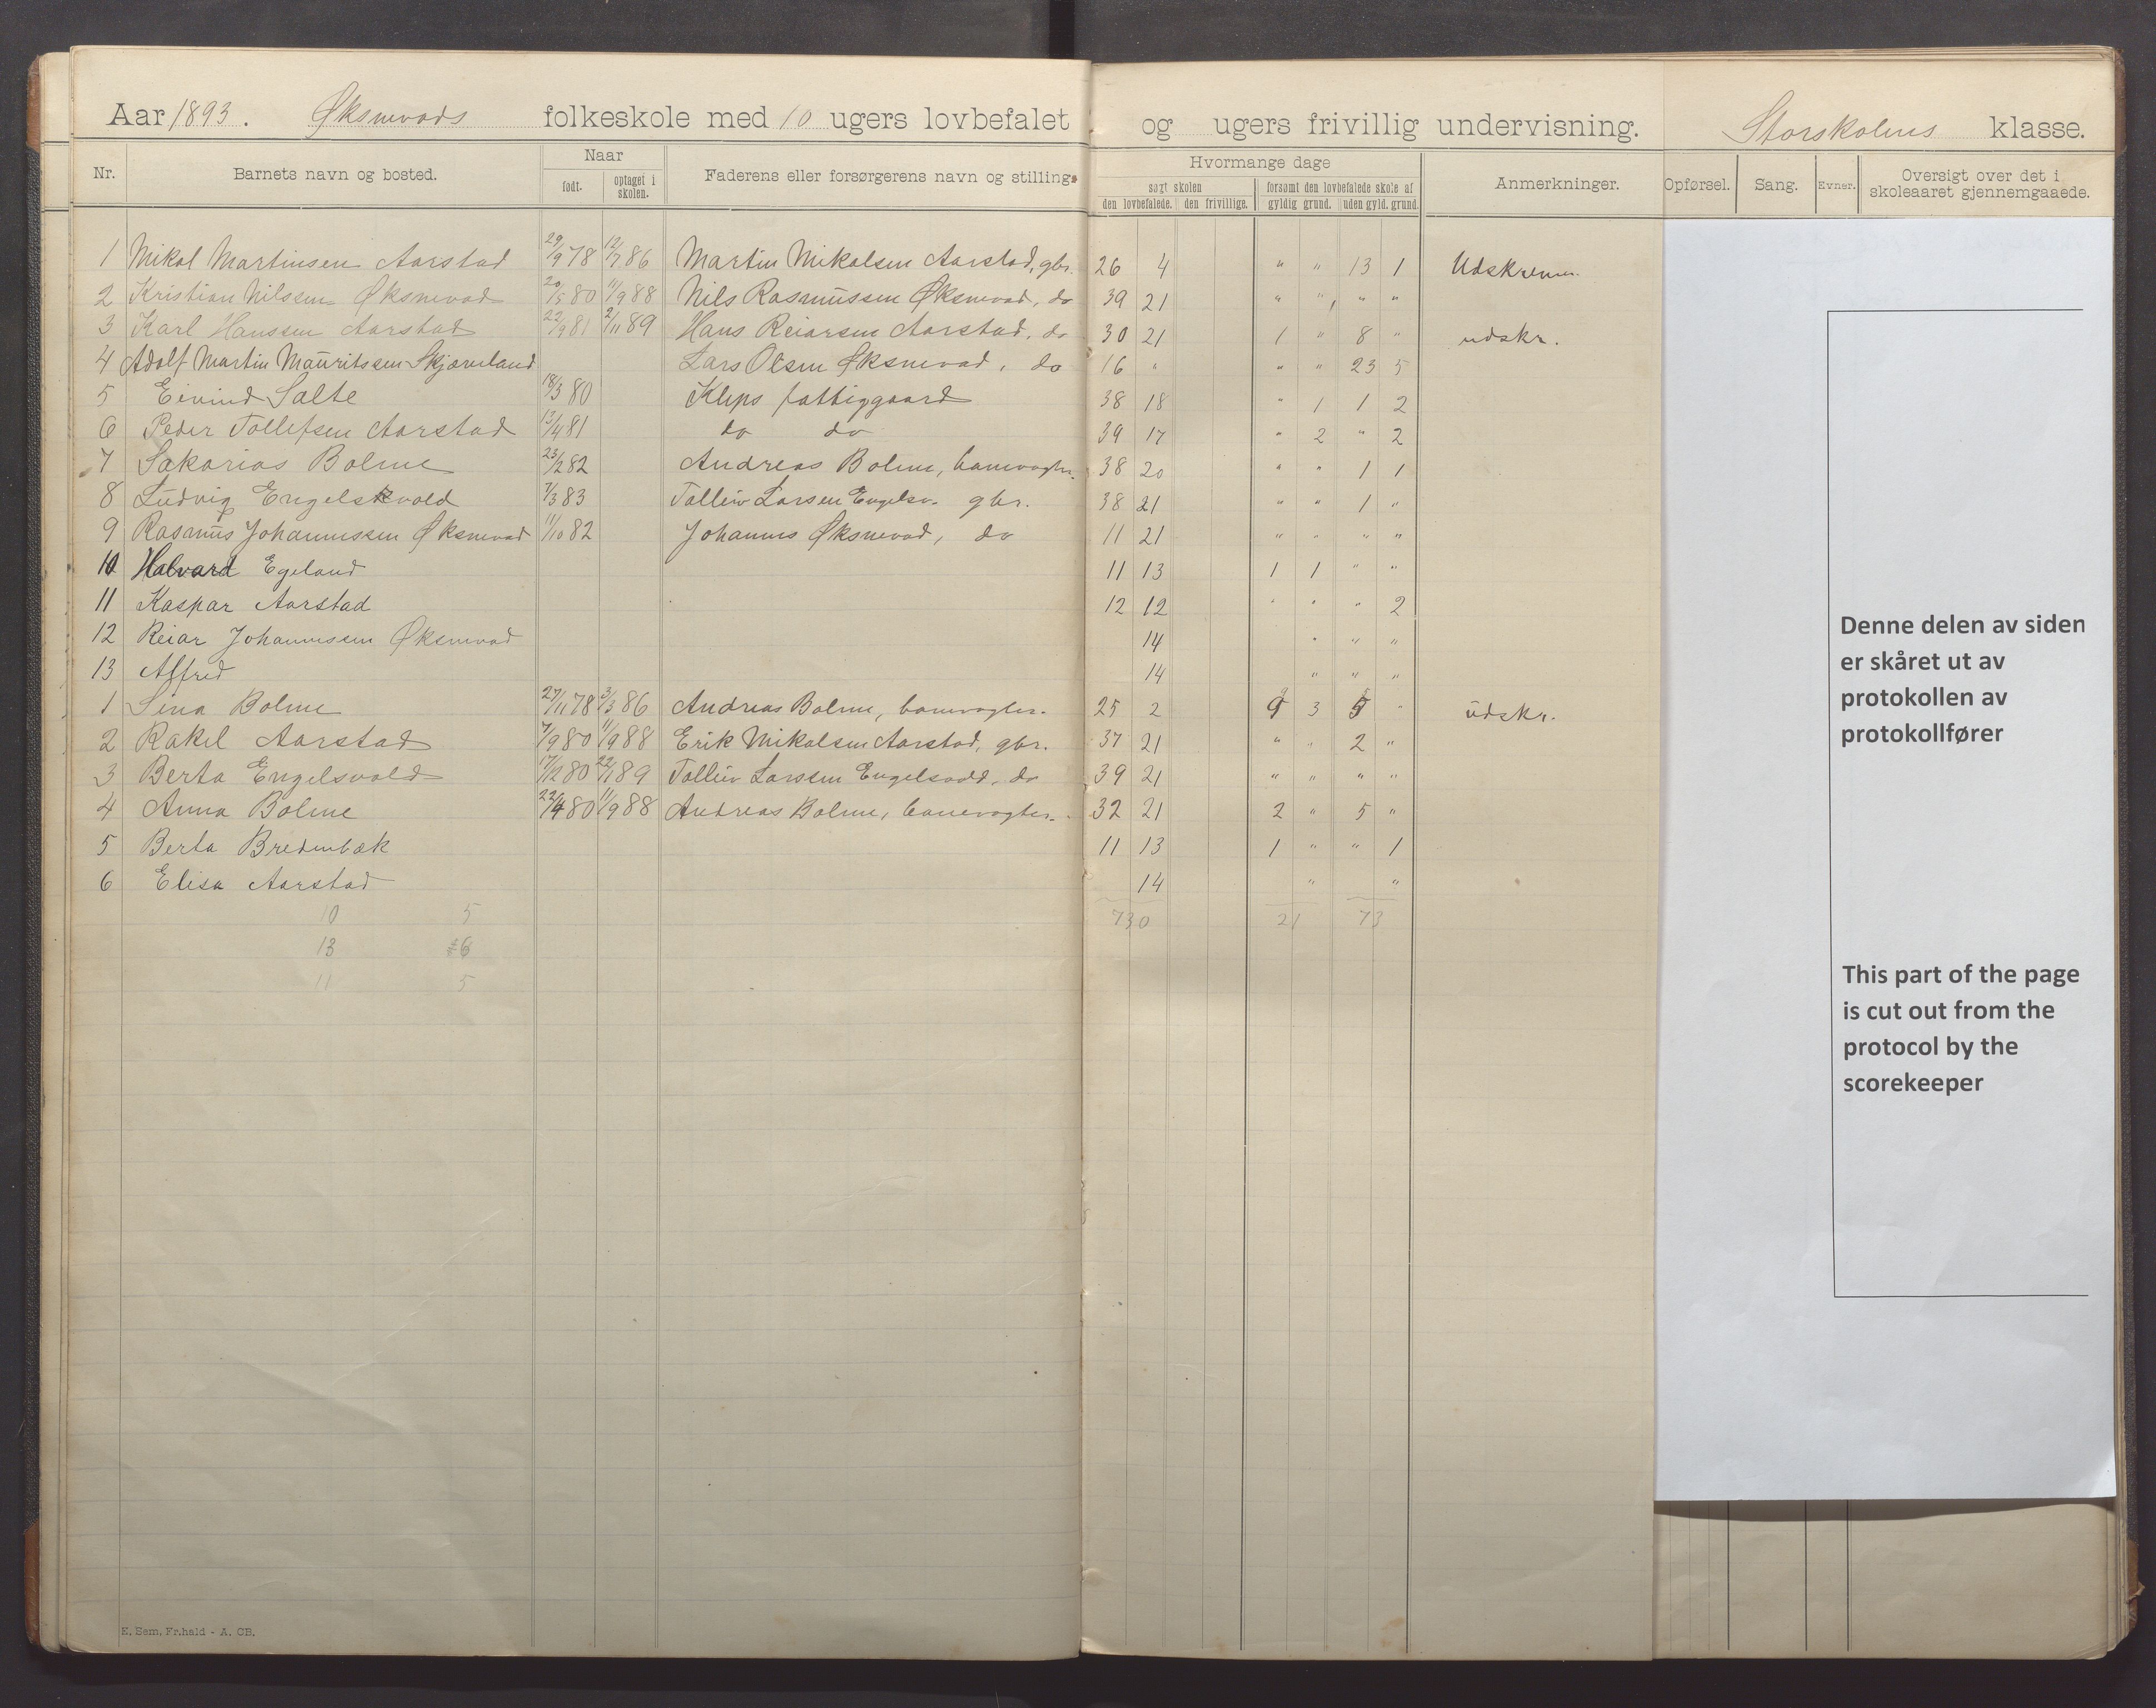 Aar 1893. Øksnevads folkeskole med 10 ugers lovbefalet og ugers frivillig undervisning. Storskolens klasse.
Nr. Barnets navn og bosted. Naar født. optaget i skolen. Faderens eller forsørgerens navn og stilling. Hvormange dage søgt skolen den lovbefalede. den frivillige. forsømt den lovbefalede skole af gyldig grund. uden gyld. grund. Anmerkninger. Opførsel. Sang. Evner. Oversigt over det i skoleaaret gjennemgaaede.
1 Mikal Martinsen Aarstad 29/9 78 12/7 86 Martin Mikalsen Aarstad, gbr. 26 4 " " 13 1
2 Kristian Nilssen Øksnevad 20/5 80 11/9 88 Nils Rasmussen Øksnevad, do 39 21 " " " "
3 Karl Hanssen Aarstad 22/9 81 2/11 89 Hans Reiarsen Aarstad, do 30 21 1 " 8 " udskr.
4 Adolf Martin Mauritssen Skjæveland Lars Olsen Øksnevad, do 16 " " " 23 5
5 Eivind Salte 18/3 80 Kleps fattiggaard 38 18 " 1 1 2
6 Peder Tollefsen Aarstad 13/4 81 do do 39 17 " 2 " 2
7 Sakarias Bolme 23/2 82 Andreas Bolme, banevogter. 38 20 " " 1 1
8 Ludvig Engelsvold 7/3 83 Tolleiv Larsen Engelsv. gbr. 38 21 " " 1 "
9 Rasmus Johannessen Øksnevad 11/10 82 Johannes Øksnevad, do 11 21 " " " "
10 Halvard Egeland 11 13 1 1 " "
11 Kaspar Aarstad 12 12 " " " 2
12 Reiar Johannessen Øksnevad 14 " " "
13 Alfred 14 " " "
1 Sina Bolme 27/11 78 3/3 86 Andreas Bolme, banevogter. 25 2 9 3 5 " udskr.
2 Rakel Aarstad 7/9 80 11/9 88 Erik Mikalsen Aarstad, gbr. 37 21 " " 2 "
3 Berta Engelsvold 17/12 80 22/1 89 Tolleiv Larssen Engelsvold, do 39 21 " " " "
4 Anna Bolme 22/4 80 11/9 88 Andreas Bolme, banevogter. 32 21 2 " 5 "
5 Berta Bredenbæk 11 13 1 " " 1
6 Elisa Aarstad 14 " "
10 5 730 21 73
13 6
11 5
Denne delen av siden
er skåret ut av
protokollen av
protokollfører
This part of the page
is cut out from the
protocol by the
scorekeeper
E. Sem, Fr.hald - A. CB.